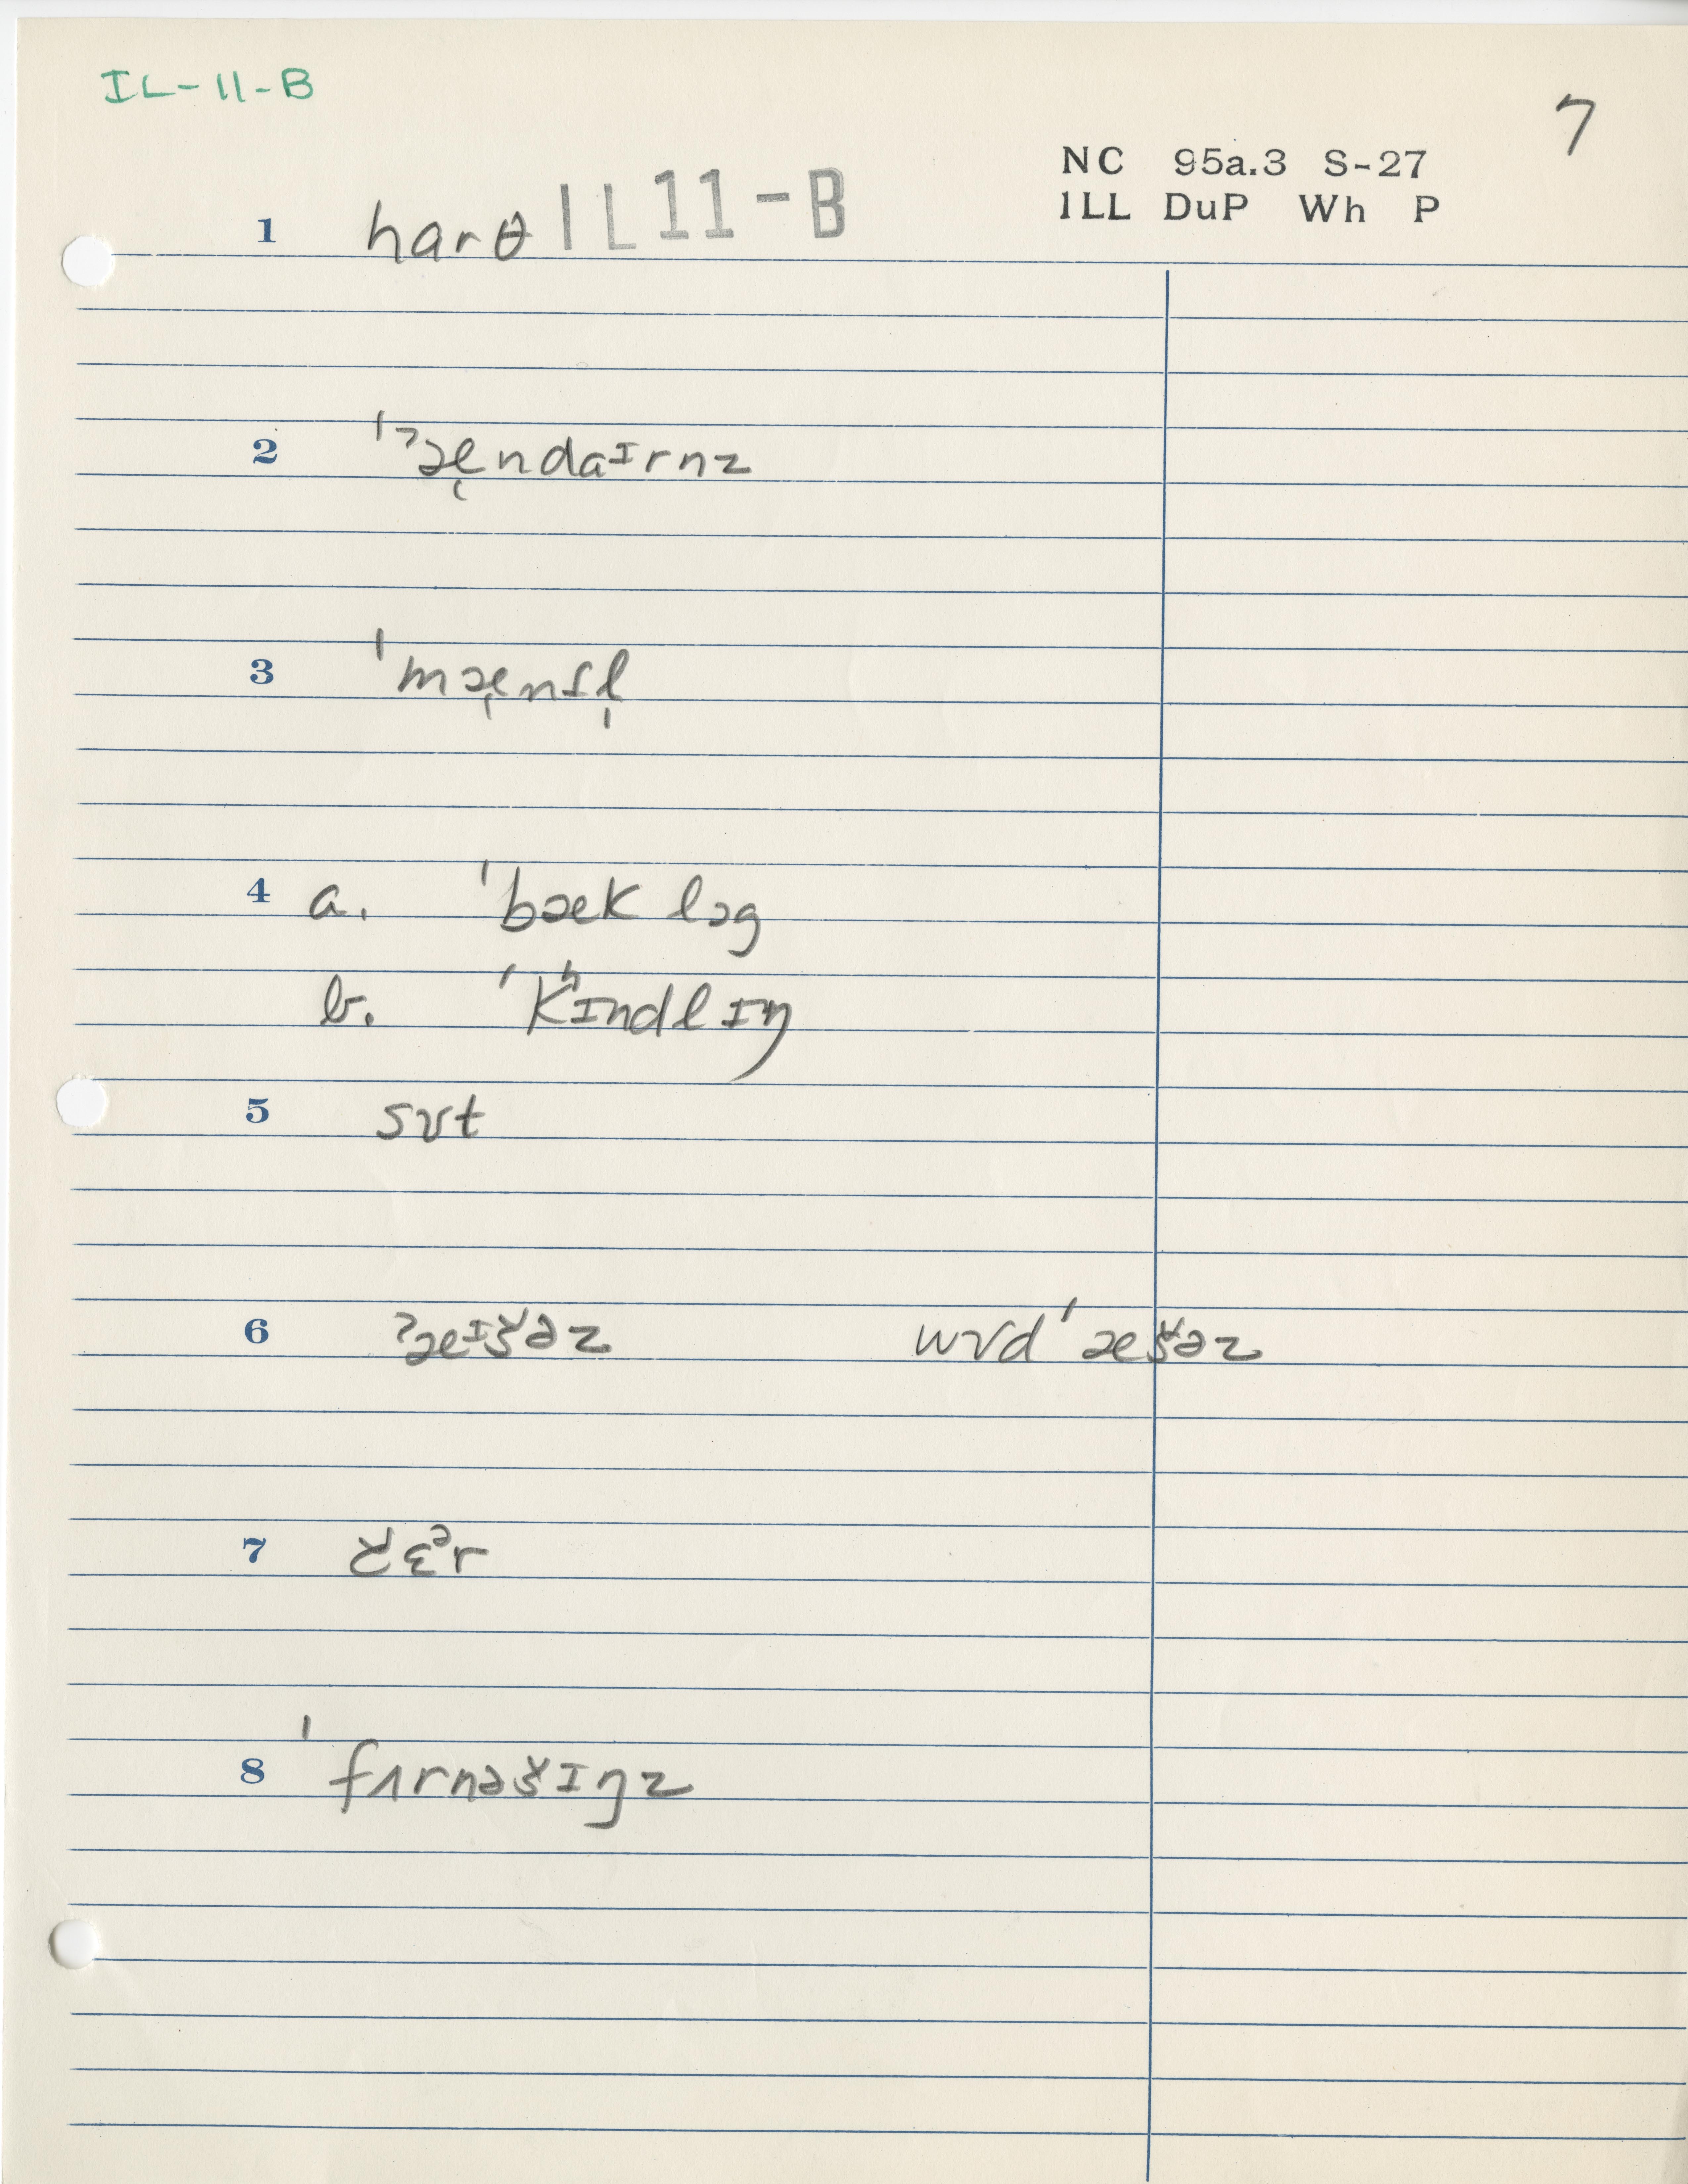 IL-11-B
7
NC 95a.3 S-27
1LL DuP Wh P
1 harθ IL11-B
2 ˈˀæ̨ndaɪrnz
3 ˈmæ̩nſl̩
4 a. ˈbæk lɔg
b. ˈkʰɪndlɪŋ
5 sʊt
6 ˀæɪšəz wʊd ˈæšəz
7 čɛᵊr
8 ˈfɜrnəšɪŋz